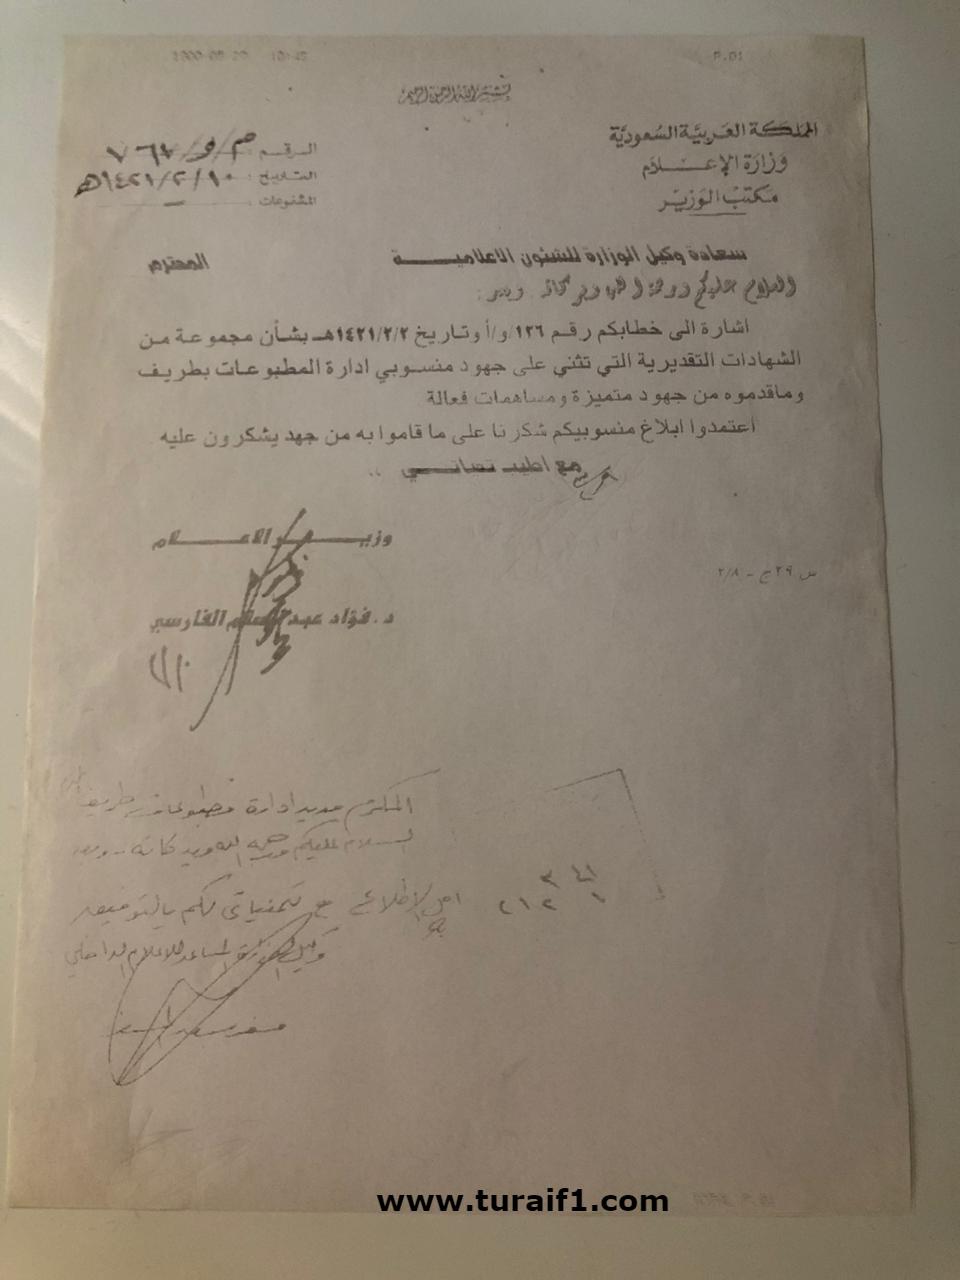 بسم الله الرحمن الرحيم
المملكة العربية السعودية
وزارة الإعلام
مكتب الوزير
الرقم: م/و/٧٦٧
التاريخ: ١٤٢١/٢/١٠هـ
المشفوعات: ـ
سعادة وكيل الوزارة للشئون الاعلاميـــة المحترم
السلام عليكم ورحمة الله وبركاته .. وبعد :
اشارة الى خطابكم رقم ١٢٦/و/أ وتاريخ ١٤٢١/٢/٢هـ بشأن مجموعة من
الشهادات التقديرية التي تثني على جهود منسوبي ادارة المطبوعات بطريف
وماقدموه من جهود متميزة ومساهمات فعالة
أعتمدوا ابلاغ منسوبيكم شكرنا على ما قاموا به من جهد يشكرون عليه
مع اطيب تحياتـــي ..
وزيـــر الاعـــلام
س ٢٩ج - ٢/٨
د. فؤاد عبدالسلام الفارسي
المكرم مدير ادارة مطبوعات طريف
السلام عليكم ورحمة الله وبركاته .. وبعد
امل الإطلاع مع تمنياتي لكم بالتوفيق
وكيل الوزارة المساعد للاعلام الداخلي
www.turaif1.com